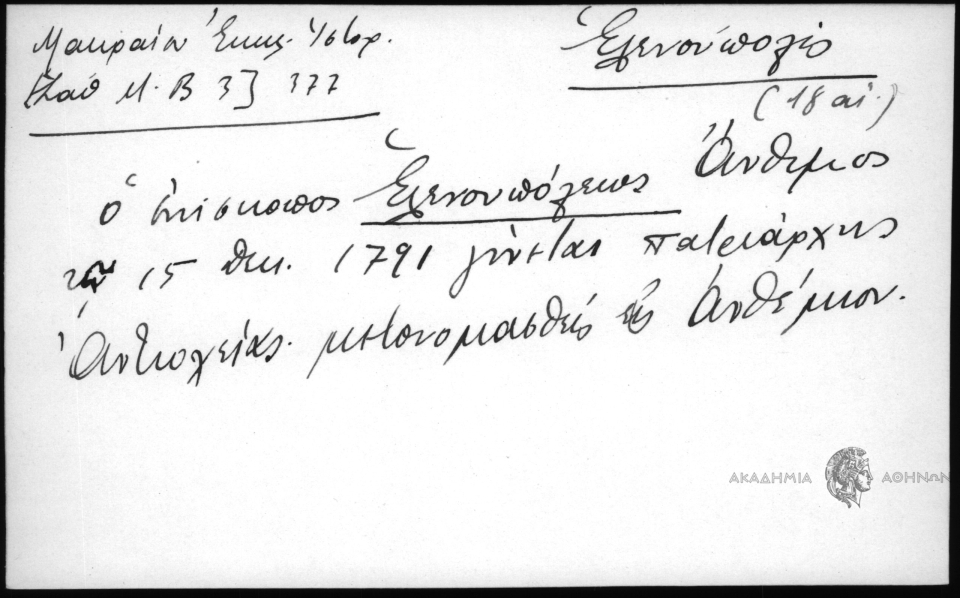 Μακραίου Ἐκκλ. Ἱστορ.
[Σάθ Μ. Β 3] 377
Ἑλενούπολις
(18 αἰ.)
ὁ ἐπίσκοπος Ἑλενουπόλεως Ἄνθιμος
τῇ 15 Δεκ. 1791 γίνεται πατριάρχης
Ἀντιοχείας. μετονομασθείς εἰς Ἀνθέμιον.
ΑΚΑΔΗΜΙΑ ΑΘΗΝΩΝ